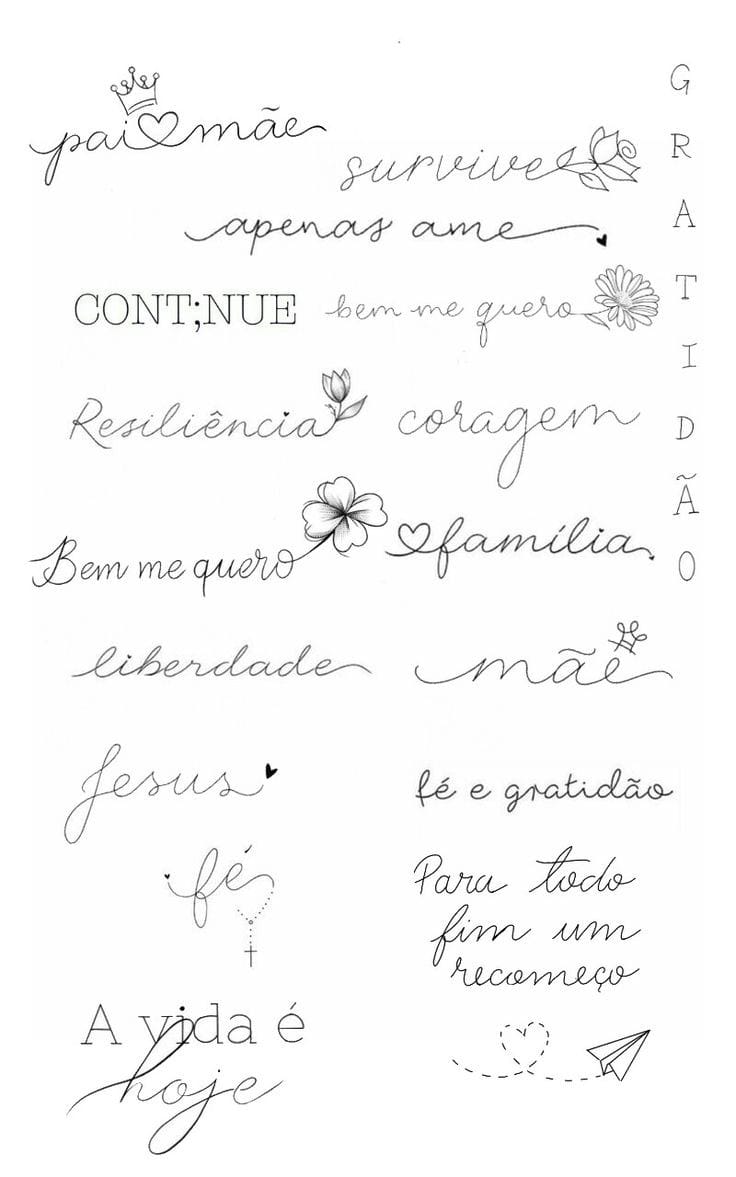 pai mãe
survive
apenas ame
CONT;NUE
bem me quero
Resiliência
coragem
Bem me quero
família
liberdade
mãe
Jesus
fé e gratidão
fé
Para todo
fim um
recomeço
A vida é
hoje
GRATIDÃO